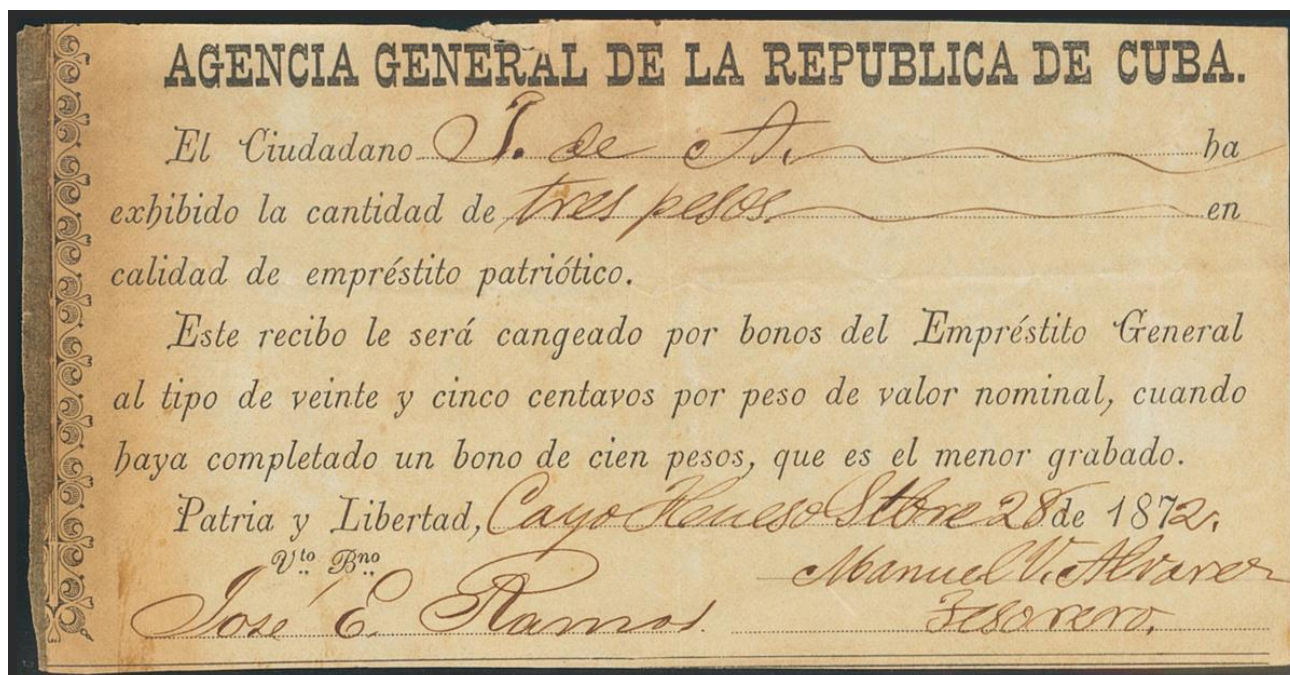 AGENCIA GENERAL DE LA REPUBLICA DE CUBA.
El Ciudadano J. de A. ha
exhibido la cantidad de tres pesos en
calidad de empréstito patriótico.
Este recibo le será cangeado por bonos del Empréstito General
al tipo de veinte y cinco centavos por peso de valor nominal, cuando
haya completado un bono de cien pesos, que es el menor grabado.
Patria y Libertad, Cayo Hueso Stbre 28 de 1872.
Vto Bno
José E. Ramos. Manuel V. Alvarez
Tesorero.